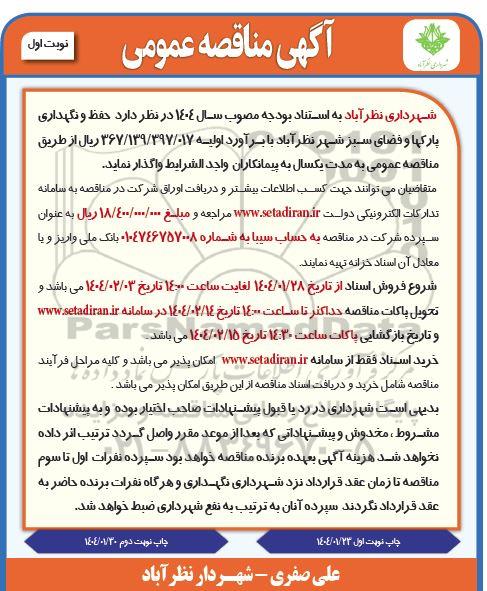 آگهی مناقصه عمومی
نوبت اول
شهرداری نظرآباد
شهرداری نظرآباد به استناد بودجه مصوب سال ۱۴۰۴ در نظر دارد حفظ و نگهداری
پارکها و فضای سبز شهر نظرآباد با برآورد اولیه ۳۶۷/۱۳۹/۳۹۷/۰۱۷ ریال از طریق
مناقصه عمومی به مدت یکسال به پیمانکاران واجد الشرایط واگذار نماید.
متقاضیان می توانند جهت کسب اطلاعات بیشتر و دریافت اوراق شرکت در مناقصه به سامانه
تدارکات الکترونیکی دولت www.setadiran.ir مراجعه و مبلغ ۱۸/۴۰۰/۰۰۰/۰۰۰ ریال به عنوان
سپرده شرکت در مناقصه به حساب سیبا به شماره ۰۱۰۴۷۴۶۷۵۷۰۰۸ بانک ملی واریز و یا
معادل آن اسناد خزانه تهیه نمایند.
شروع فروش اسناد از تاریخ ۱۴۰۴/۰۱/۲۸ لغایت ساعت ۱۴:۰۰ تاریخ ۱۴۰۴/۰۲/۰۳ می باشد و
تحویل پاکات مناقصه حداکثر تا ساعت ۱۴:۰۰ تاریخ ۱۴۰۴/۰۲/۱۴ در سامانه www.setadiran.ir
و تاریخ بازگشایی پاکات ساعت ۱۴:۳۰ تاریخ ۱۴۰۴/۰۲/۱۵ می باشد.
خرید اسناد فقط از سامانه www.setadiran.ir امکان پذیر می باشد و کلیه مراحل فرآیند
مناقصه شامل خرید و دریافت اسناد مناقصه از این طریق امکان پذیر می باشد.
بدیهی است شهرداری در رد یا قبول پیشنهادات صاحب اختیار بوده و به پیشنهادات
مشروط ، مخدوش و پیشنهاداتی که بعد از موعد مقرر واصل گردد ترتیب اثر داده
نخواهد شد هزینه آگهی بعهده برنده مناقصه خواهد بود سپرده نفرات اول تا سوم
مناقصه تا زمان عقد قرارداد نزد شهرداری نگهداری و هرگاه نفرات برنده حاضر به
عقد قرارداد نگردند سپرده آنان به ترتیب به نفع شهرداری ضبط خواهد شد.
چاپ نوبت اول ۱۴۰۴/۰۱/۲۳
چاپ نوبت دوم ۱۴۰۴/۰۱/۳۰
علی صفری - شهردار نظرآباد
ParsNamadData
۰۲۱-۸۸۳۴۹۶۷۰-۵